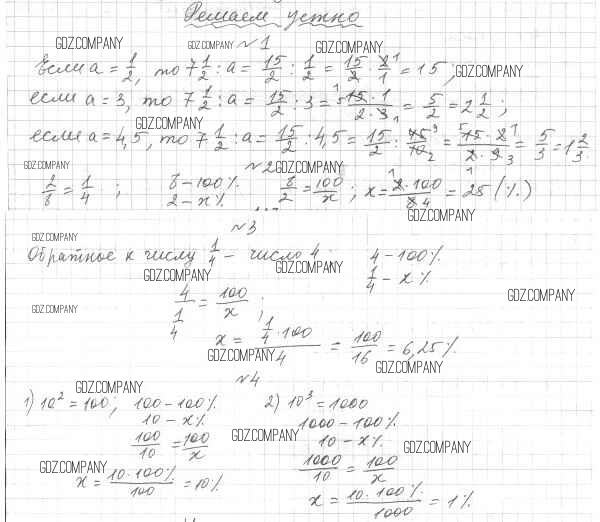 Решаем устно
GDZ.COMPANY GDZ.COMPANY №1 GDZ.COMPANY
Если a = 1/2, то 7 1/2 : a = 15/2 : 1/2 = 15/2 · 2/1 = 15; GDZ.COMPANY
если a = 3, то 7 1/2 : a = 15/2 : 3 = 15 · 1 / 2 · 3 = 5/2 = 2 1/2;
GDZ.COMPANY
если a = 4,5, то 7 1/2 : a = 15/2 : 4,5 = 15/2 : 45/10 = 15 · 2 / 2 · 9 = 5/3 = 1 2/3.
GDZ.COMPANY №2 GDZ.COMPANY
2/8 = 1/4; 8 – 100% 8/2 = 100/x; x = 2 · 100 / 8 = 25 (%)
2 – x%
GDZ.COMPANY
№3
GDZ.COMPANY
Обратное к числу 1/4 – число 4. 4 – 100%
GDZ.COMPANY GDZ.COMPANY 1/4 – x%
GDZ.COMPANY
4 / 1/4 = 100/x;
GDZ.COMPANY
x = 1/4 · 100 / 4 = 100/16 = 6,25%.
GDZ.COMPANY GDZ.COMPANY
№4
GDZ.COMPANY
1) 10² = 100; 100 – 100% 2) 10³ = 1000
10 – x% 1000 – 100%
GDZ.COMPANY 10 – x%
100/10 = 100/x GDZ.COMPANY
GDZ.COMPANY 1000/10 = 100/x
x = 10 · 100% / 100 = 10%
x = 10 · 100% / 1000 = 1%